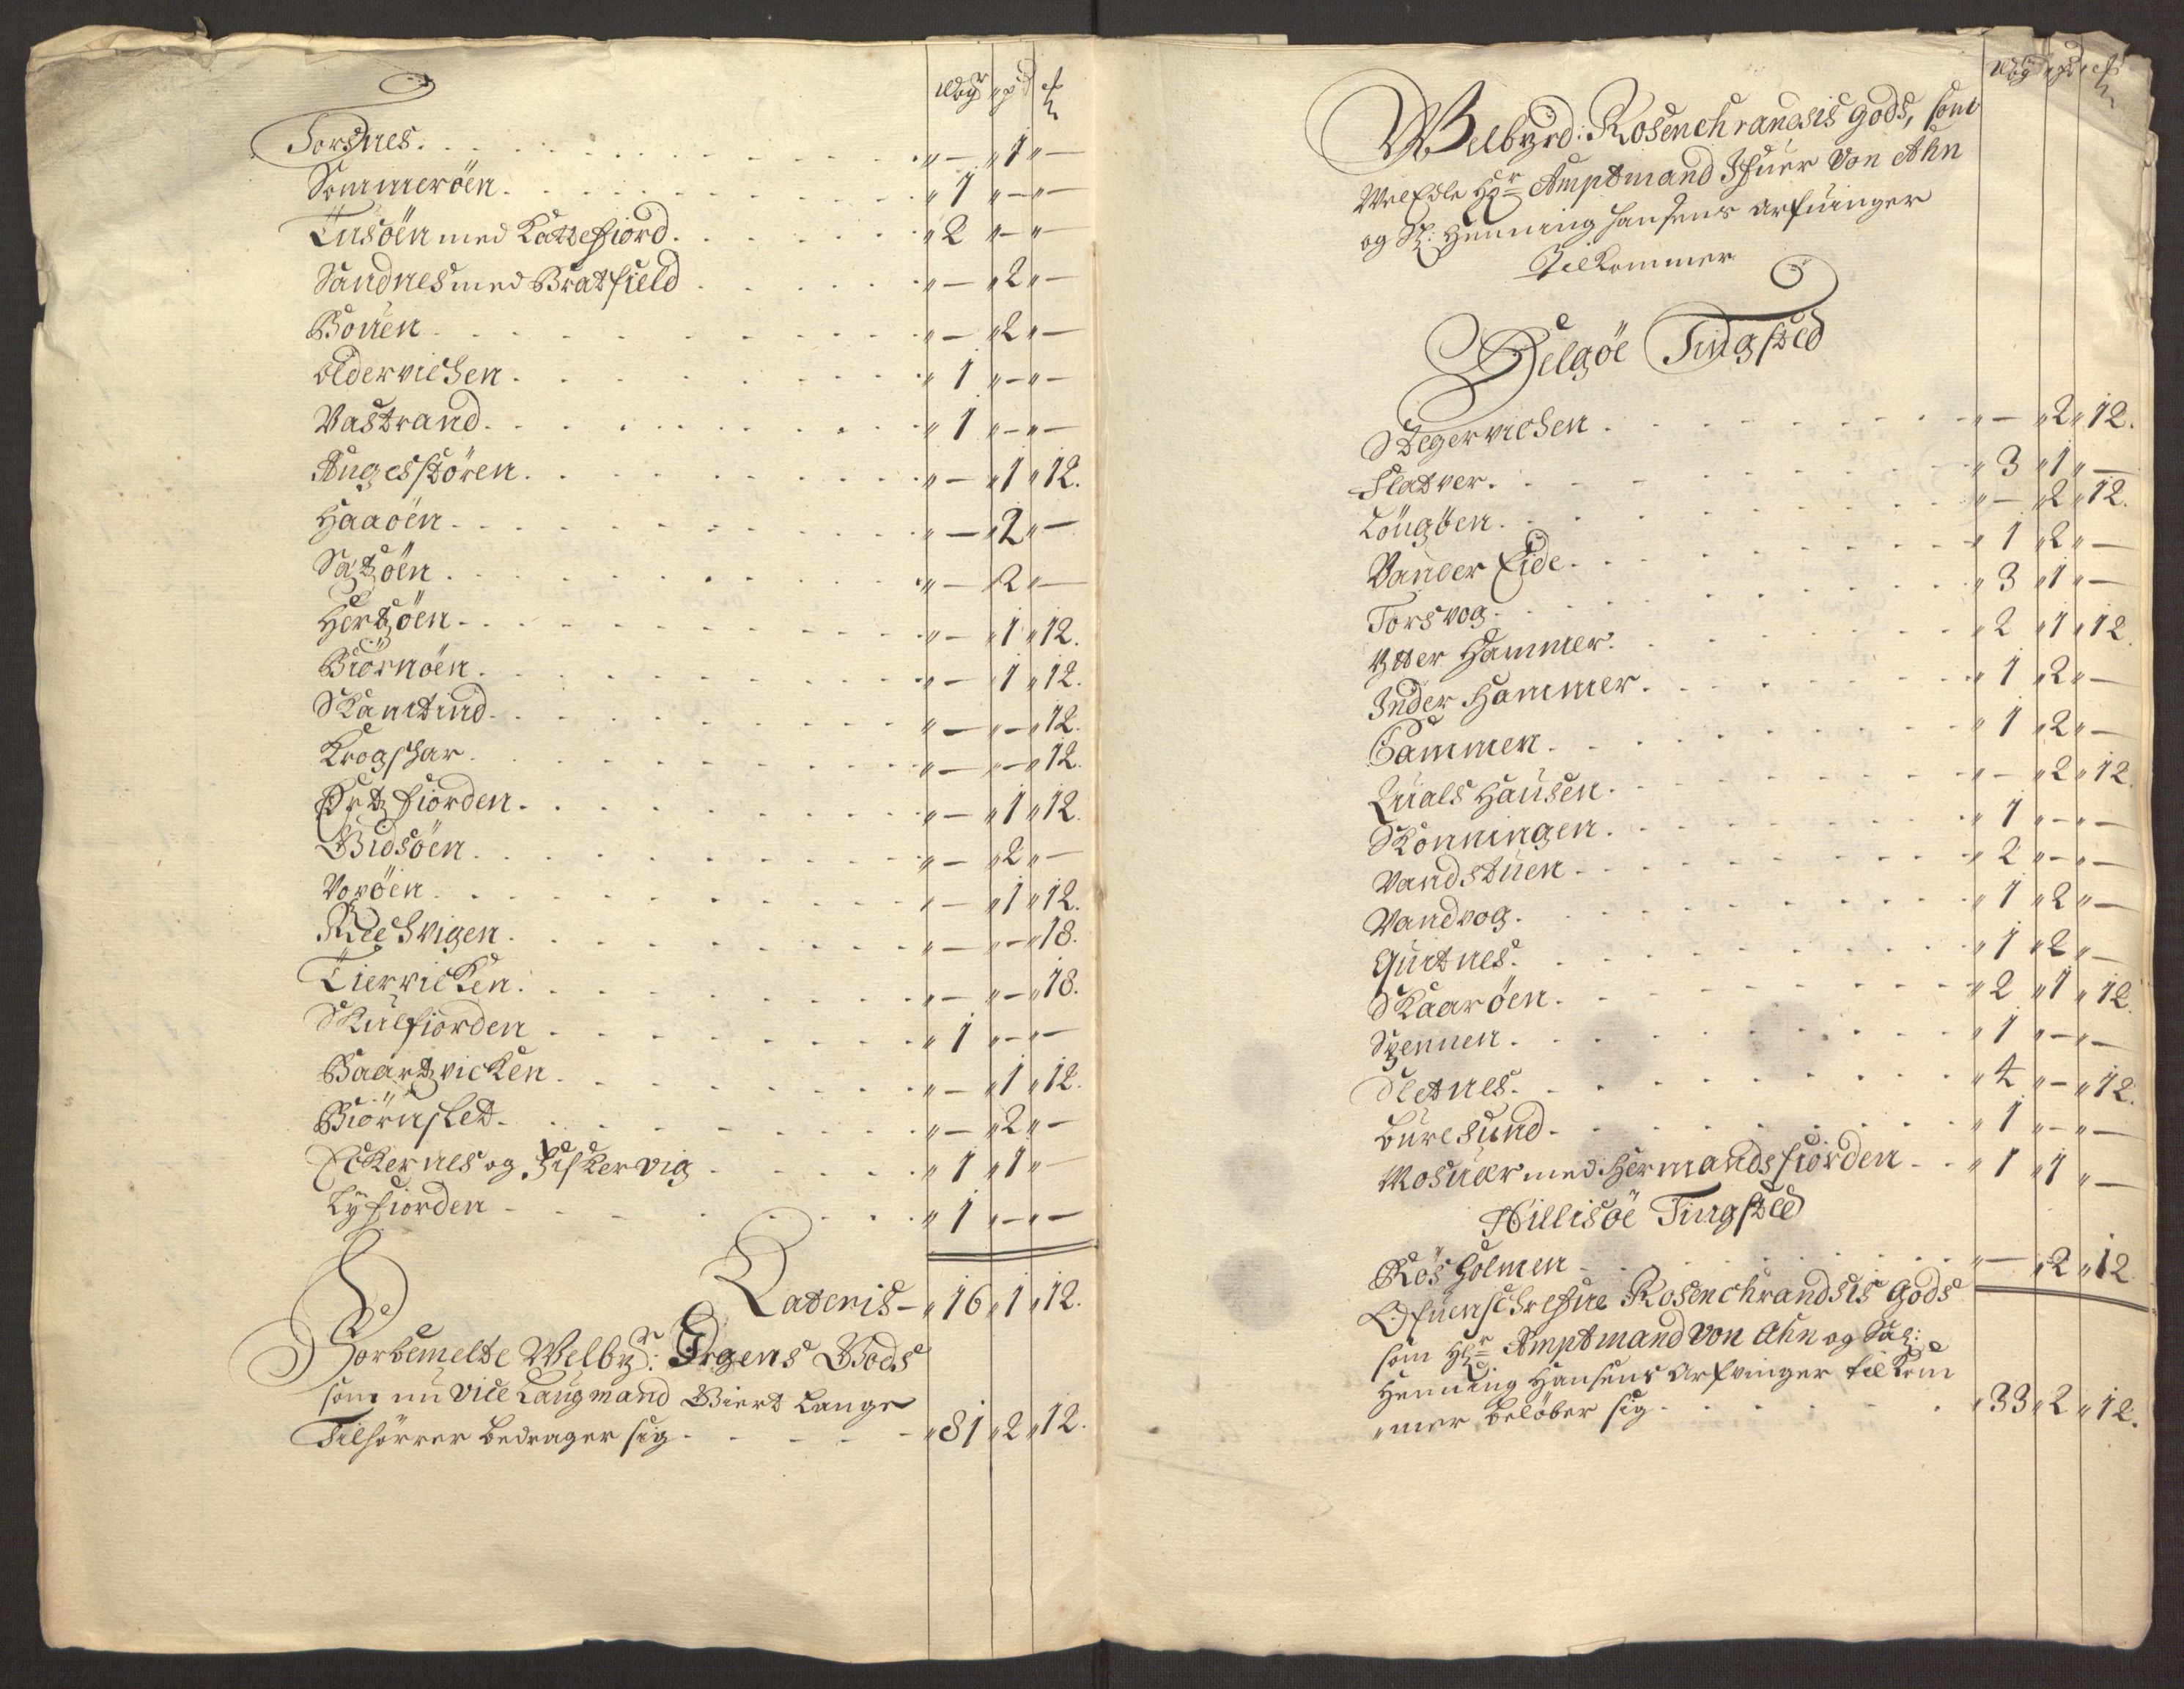 Wog pd ℔
Torsnes. " — " 1 " —
Sommeröen. " 1 " — " —
Tusöen med Kattefiord. " 2 " — " —
Sandnes med Bratfield " — " 2 " —
Bouen " — " 2 " —
Oldervichen. " 1 " — " —
Vastrand. " 1 " — " —
Angesstören. " — " 1 " 12.
Haaöen. " — " 2 " —
Satzöen. " — " 2 " —
Hertzöen. " — " 1 " 12.
Biörnöen. " — " 1 " 12.
Skamtind. " — " — " 12.
Krogshar. " — " — " 12.
Ertzfiorden. " — " 1 " 12.
Widsöen. " — " 2 " —
Voröen. " — " 1 " 12.
Reehvigen. " — " — " 18.
Tiervicken. " — " — " 18.
Skulfiorden. " 1 " — " —
Baartzvicken. " — " 1 " 12.
Biörnsket. " — " 2 " —
Eckernes og Fiskervig " 1 " 1 " —
Lyfiorden " 1 " — " —
Lateris — " 16 " 1 " 12.
Forbemelte Welbr: Irgens Gods
som nu Vice Laugmand Giert Lange
Tilhörrer bedrager sig " 81 " 2 " 12.
Wog pd ℔
Welbyrd: Rosenchrandsis gods, som
WelEdle Hr Amptmand Ifuer Von Ahn
og Sl: Henning Hansens arfuinger
Tilkommer
Helgöe Tingsted
Stegervichen. " — " 2 " 12.
Flatver. " 3 " 1 " —
Löugöen. " — " 2 " 12.
Vander Eide. " 1 " 2 " —
Torsvog. " 3 " 1 " —
Ytter Hammer. " 2 " 1 " 12.
Inder Hammer. " 1 " 2 " —
Gammen. " 1 " 2 " —
Qualshausen. " — " 2 " 12
Skonningen. " 1 " — " —
Vandstuen. " 2 " — " —
Vandvog. " 1 " 2 " —
Quitnes. " 1 " 2 " —
Skaaröen. " 2 " 1 " 12.
Spennen. " 1 " — " —
Sletnes. " 4 " — " 12.
Buresund. " 1 " — " —
Mosuær med Hermandsfiorden " 1 " 1 " —
Hillisöe Tingsted
Rösholmen " — " 2 " 12
Ofuenschrefne Rosenchrandsis Gods
som Hr Amptmand Von Ahn og Sal:
Henning Hansens Arfvinger tilkom
"mer belöber sig " 33 " 2 " 12.